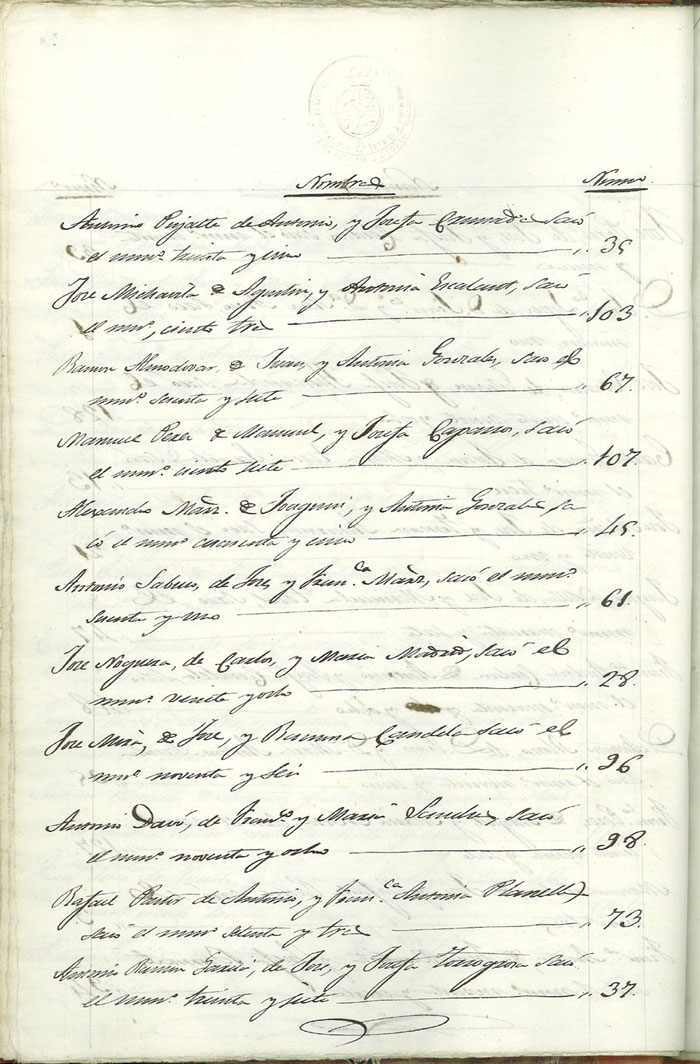 Nombres Numº
Antonio Pujalte de Antonio, y Josefa sacó
el numº treinta y cinco 35
Jose Michavila de Agustin, y Antonia sacó
el numº, ciento tres 103
Ramon Almodovar de Juan, y Antonia Gonzales, saco el
numº sesenta y siete 67
Manuel Perez de Manuel, y Josefa Caparros, sacó
el numº ciento siete 107
Alexandro Mañz. de Joaquin, y Antonia Gonzales sa
có el numº cuarenta y cinco 45
Antonio de Jose, y Franca Mañz, sacó el numº
sesenta y uno 61
Jose Noguera, de Carlos, y Maria Madrid, sacó el
numº veinte y ocho 28
Jose Mirà, de Jose, y Ramona Candela sacó el
numº noventa y seis 96
Antonio Davó, de Franco y Maria sacó
el numº noventa y ocho 98
Rafael Pastor de Antonio, y Franca Antonia Planelles
sacó el numº setenta y tres 73
Antonio Ramon Garcia, de Jose, y Josefa Torregrosa sacó
el numº treinta y siete 37